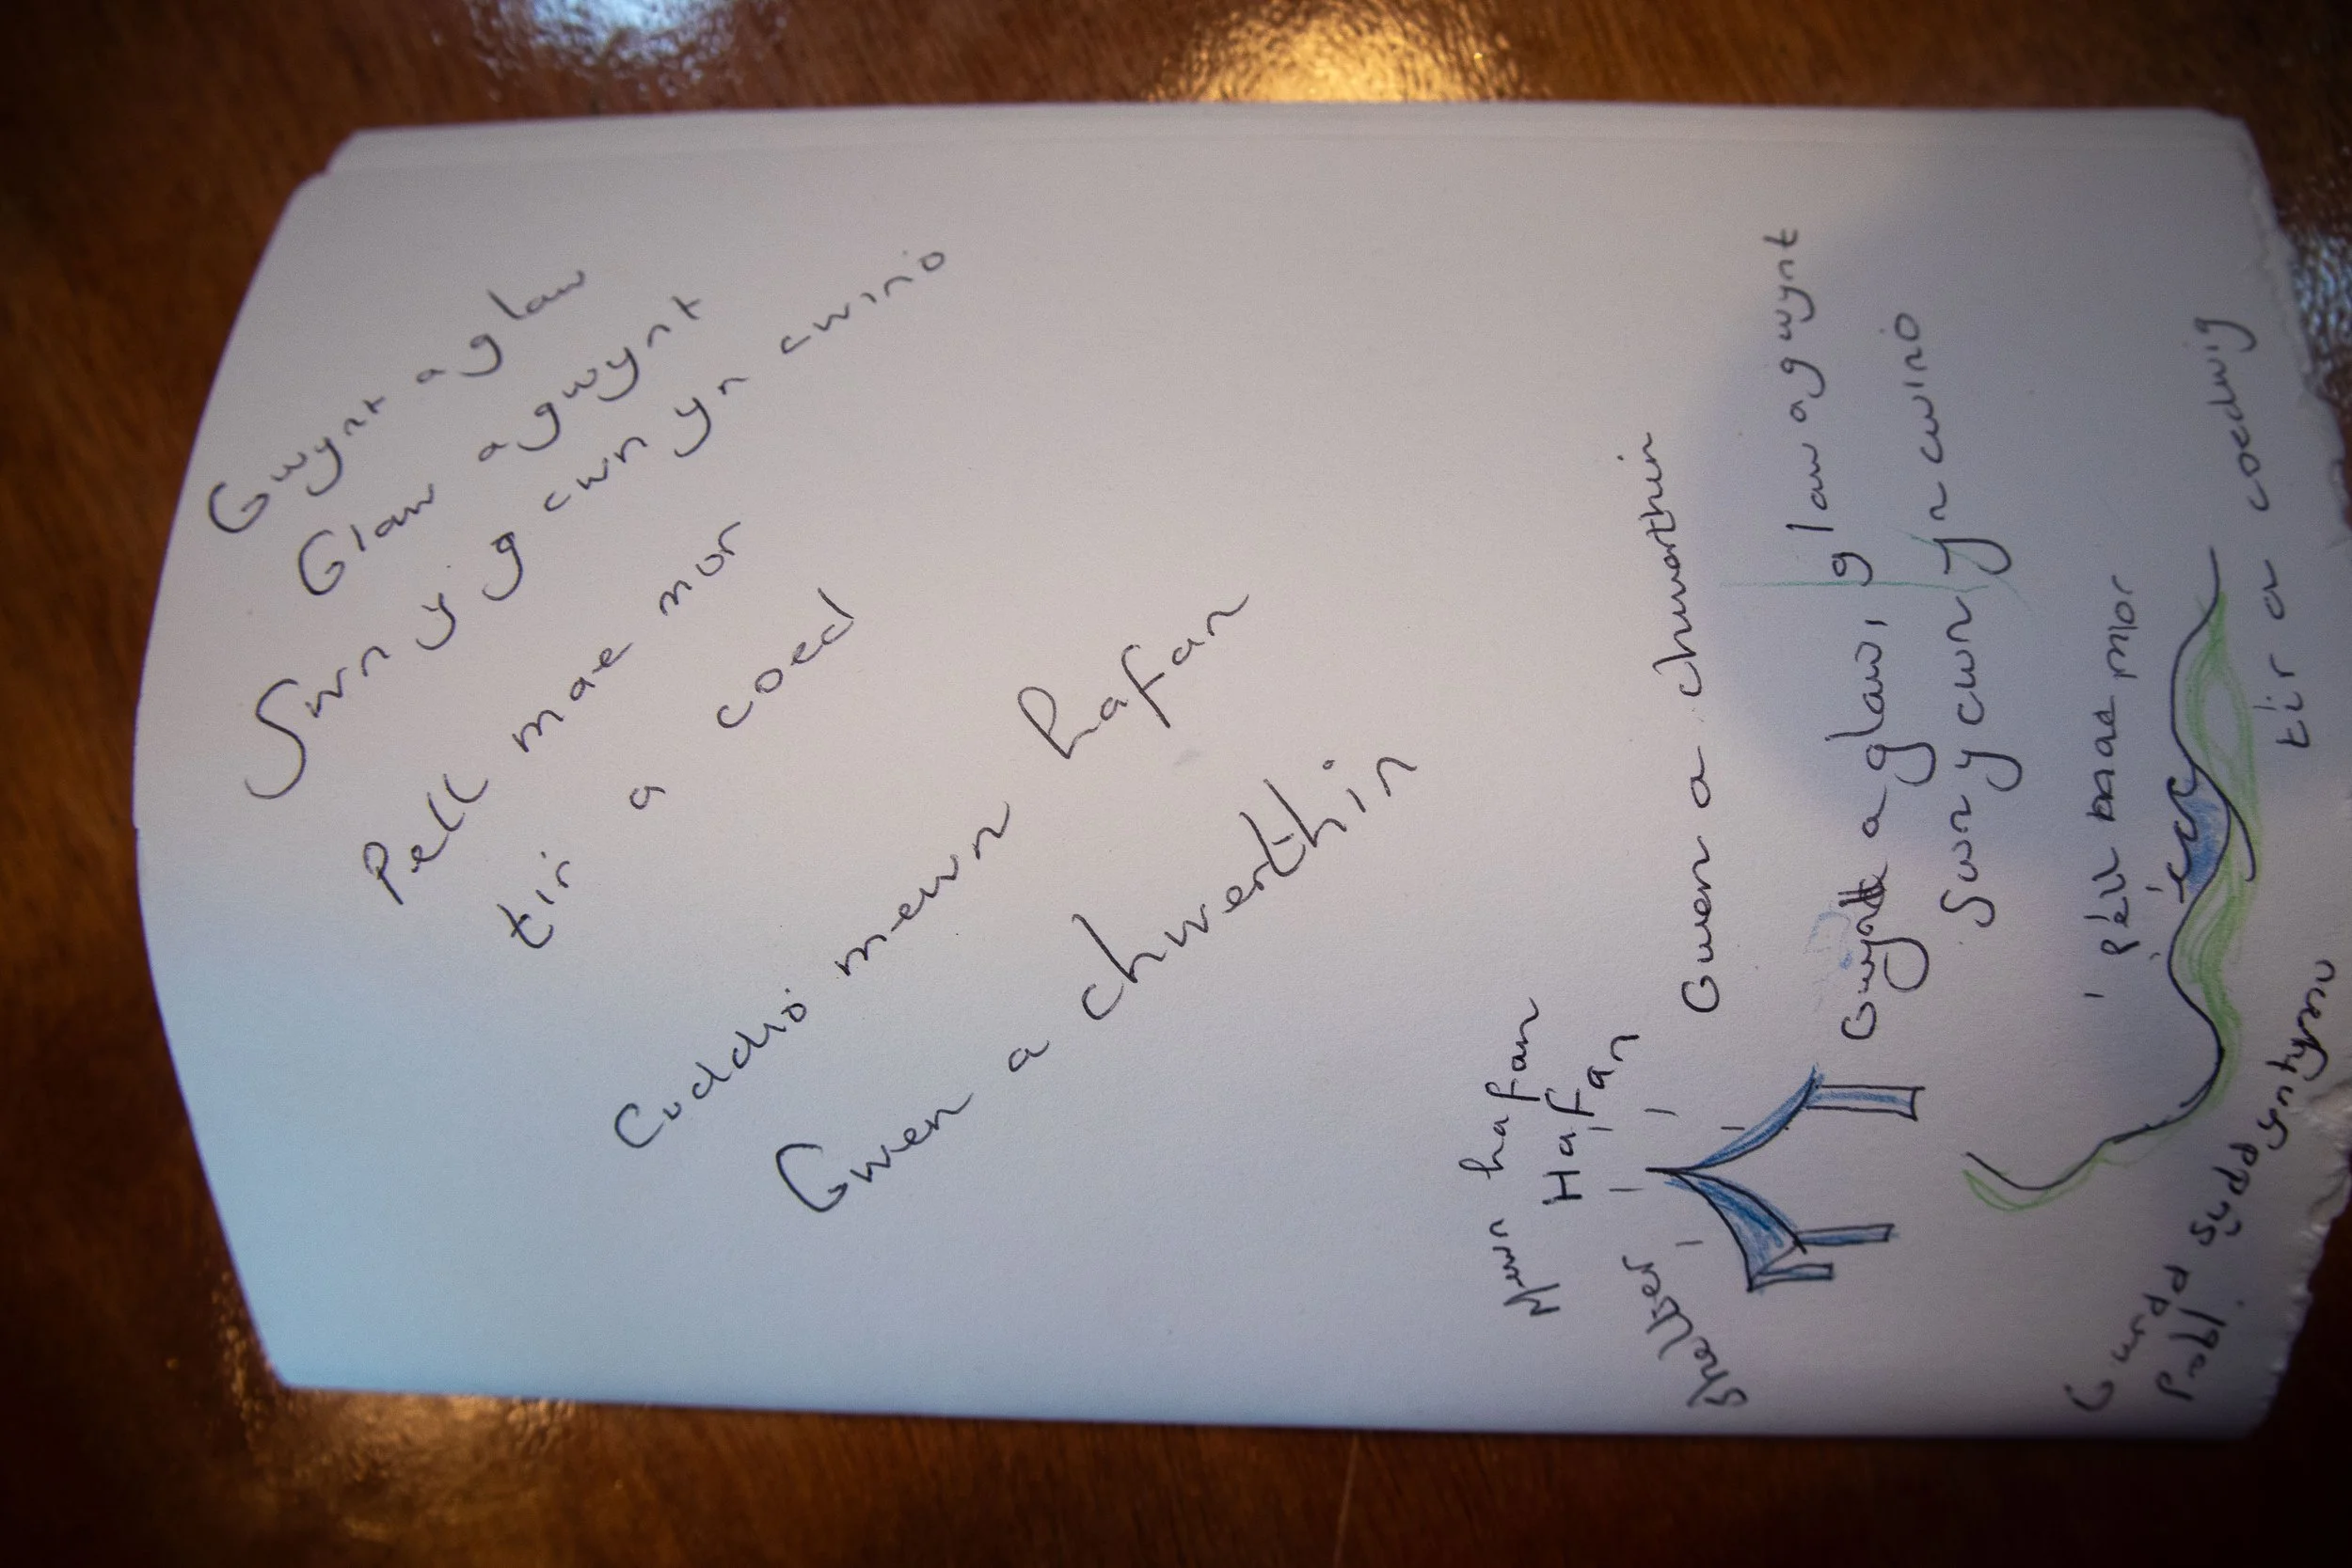 Gwynt a glaw
Glaw a gwynt
Swn y g cwn yn cwino
Pell mae mor
tir a coed
Cuddio mewn hafan
Gwen a chwerthin
Mewn hafan
Hafan
Shelter
Gwen a chwerthin
Gwynt a glaw, glaw a gwynt
Swn y cwn yn cwino
Pell mae mor
tir a coedwig
Gwrdd
Pobl sydd syntynnu